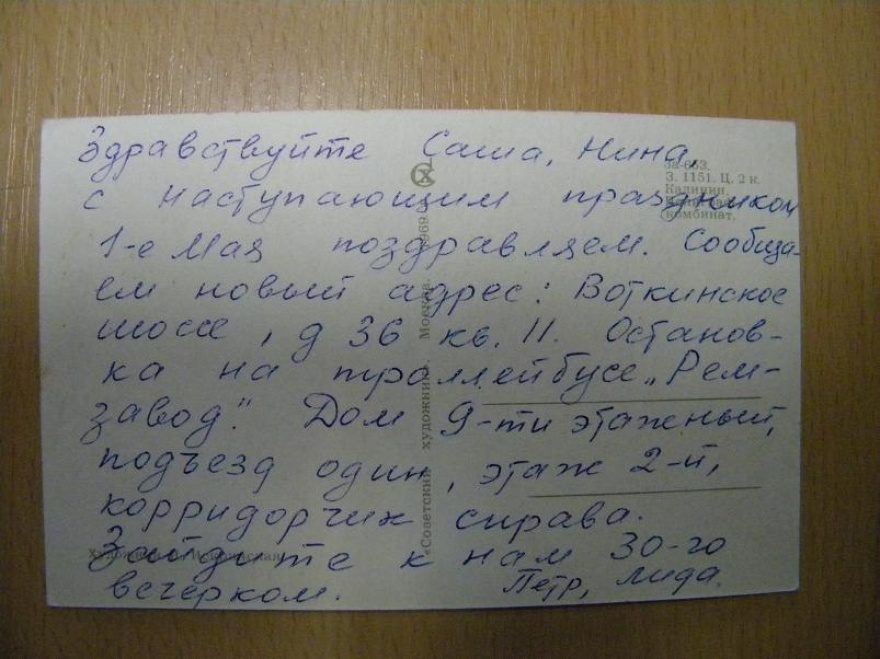 Здравствуйте Саша, Нина,
с наступающим праздником
1-е Мая поздравляем. Сообща-
ем новый адрес: Воткинское
шоссе, д 36 кв. 11. Останов-
ка на троллейбусе „Рем-
завод". Дом 9-ти этажный,
подъезд один, этаж 2-й,
корридорчик справа.
Зайдите к нам 30-го
вечерком. Петр, Лида.
3а-663.
З. 1151. Ц. 2 к.
Калинин.
комбинат.
«Советский художник». Москва. 1969.